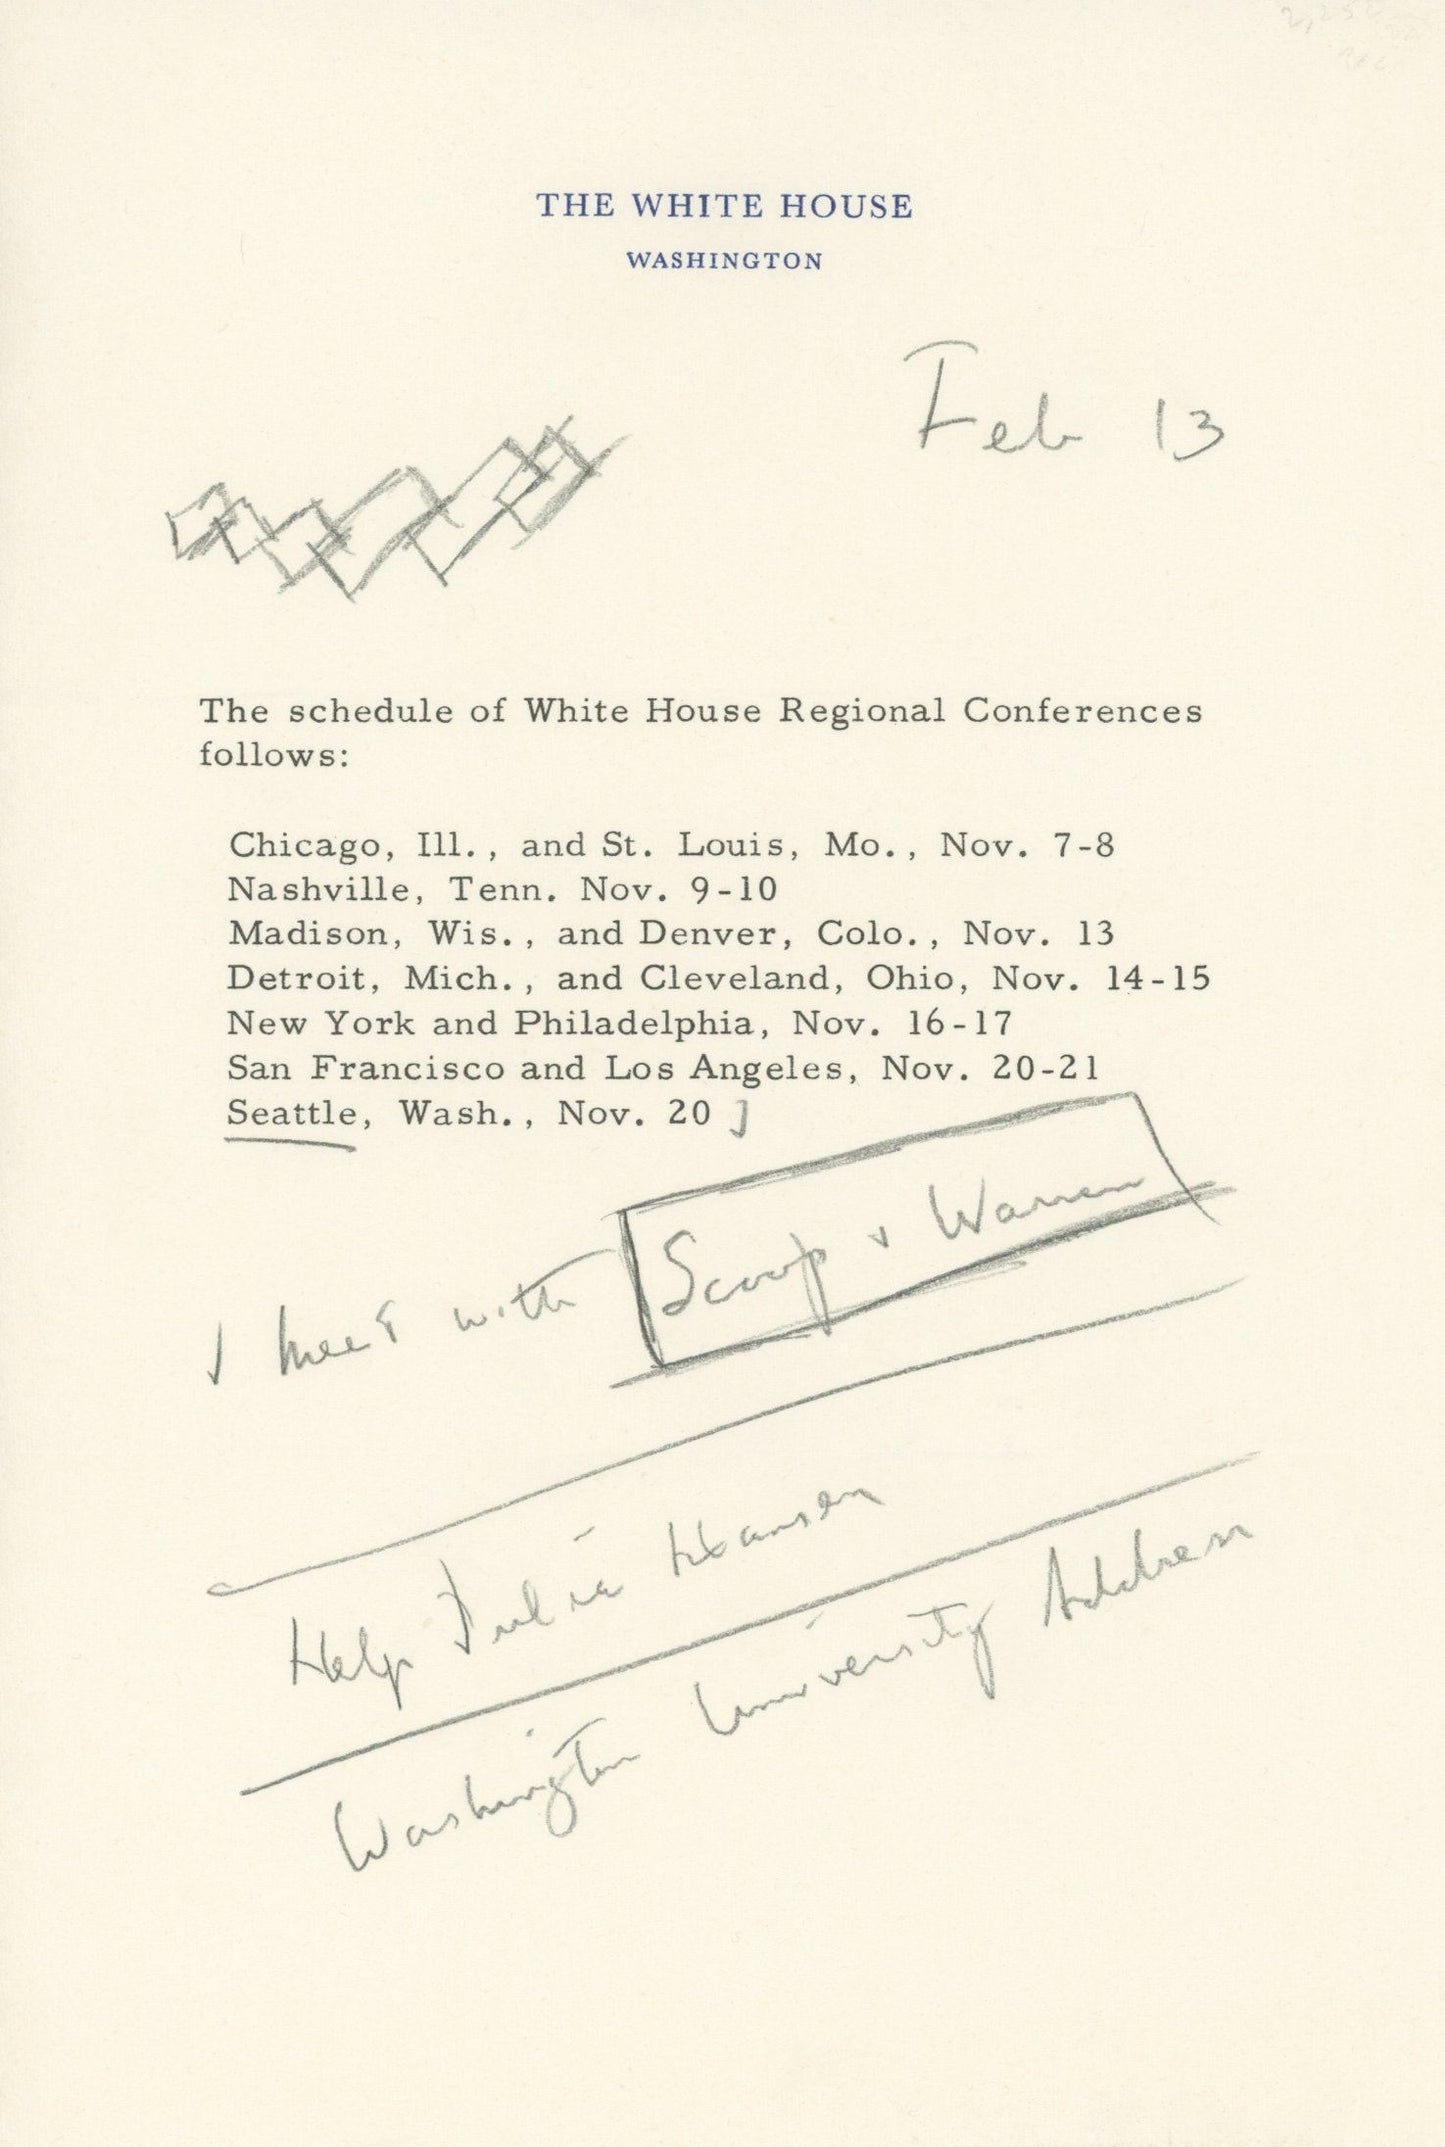 THE WHITE HOUSE
WASHINGTON
Feb 13
The schedule of White House Regional Conferences
follows:
Chicago, Ill., and St. Louis, Mo., Nov. 7-8
Nashville, Tenn. Nov. 9-10
Madison, Wis., and Denver, Colo., Nov. 13
Detroit, Mich., and Cleveland, Ohio, Nov. 14-15
New York and Philadelphia, Nov. 16-17
San Francisco and Los Angeles, Nov. 20-21
Seattle, Wash., Nov. 20
I meet with Scoop + Warren
Help Julia Hansen
Washington University Address